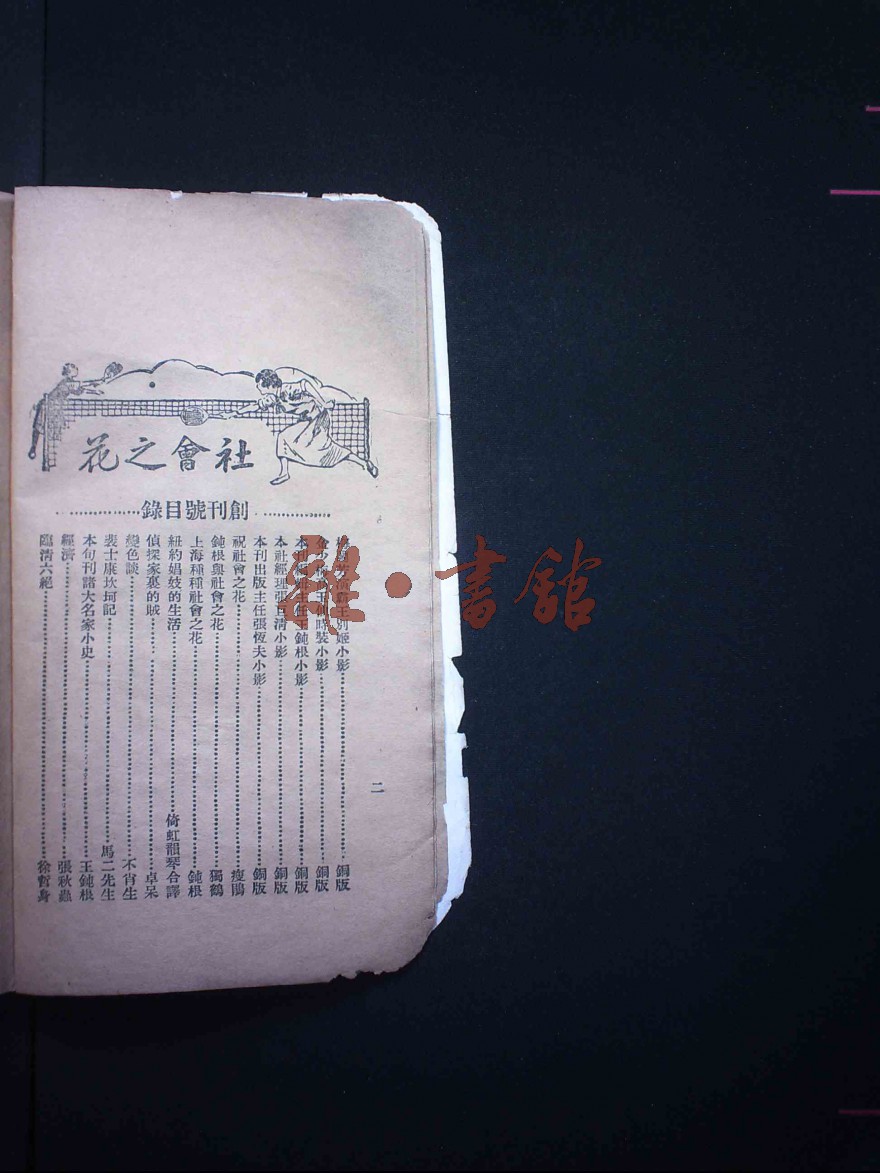 社會之花
創刊號目錄
霸王別姬小影 銅版
金少梅 時裝小影 銅版
本刊編輯主任王鈍根小影 銅版
本社經理張 清小影 銅版
本刊出版主任張恆夫小影 銅版
祝社會之花 瘦鵑
鈍根與社會之花 獨鶴
上海種種社會之花 鈍根
紐約娼妓的生活 倚虹韻琴合譯
偵探家裏的賊 卓呆
變色談 不肖生
裴士康坎坷記 馬二先生
本旬刊諸大名家小史 王鈍根
經濟 張秋蟲
臨清六絕 徐哲身
二
雜·書館